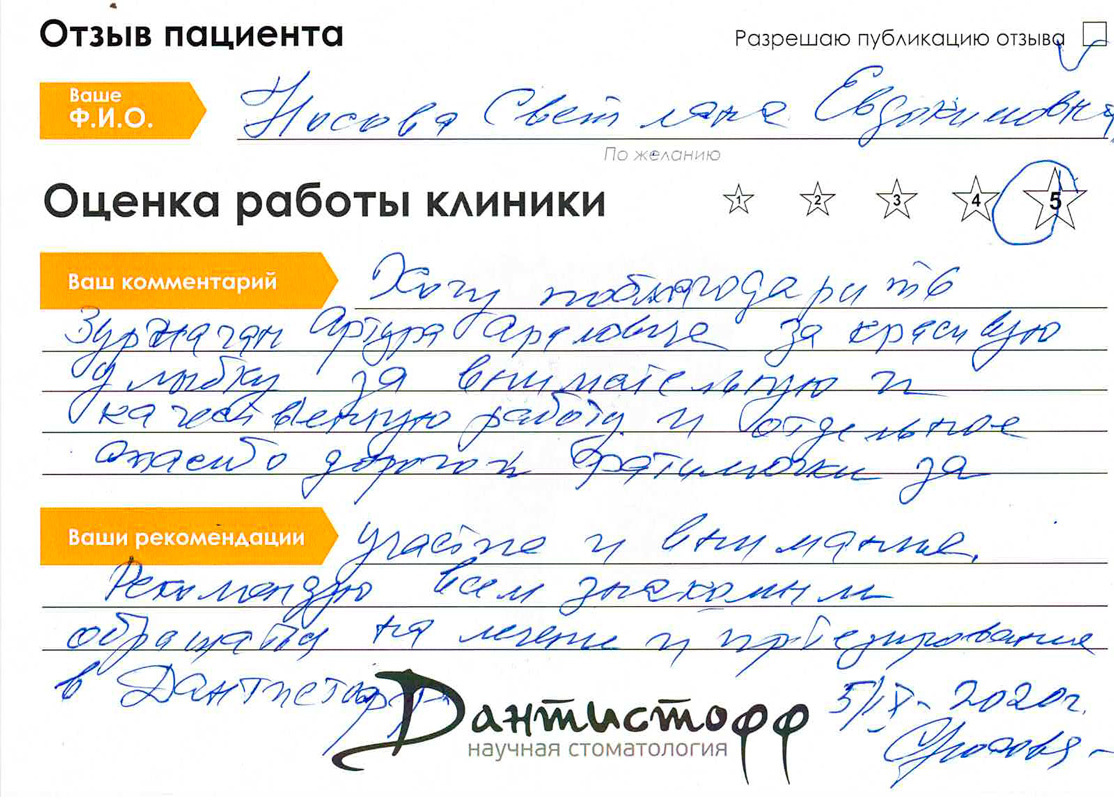 Отзыв пациента
Разрешаю публикацию отзыва
Ваше
Ф.И.О.
Носова Светлана Евдокимовна
По желанию
Оценка работы клиники
1 2 3 4 5
Ваш комментарий
Хочу поблагодарить
Артура за красивую
улыбку за внимательную и
качественную работу и отдельное
спасибо дорогой Фатимочки за
Ваши рекомендации
участие и внимание.
Рекомендую всем знакомым
на лечение и протезирование
в Дантистофф
5/IX-2020г.
Дантистофф
научная стоматология